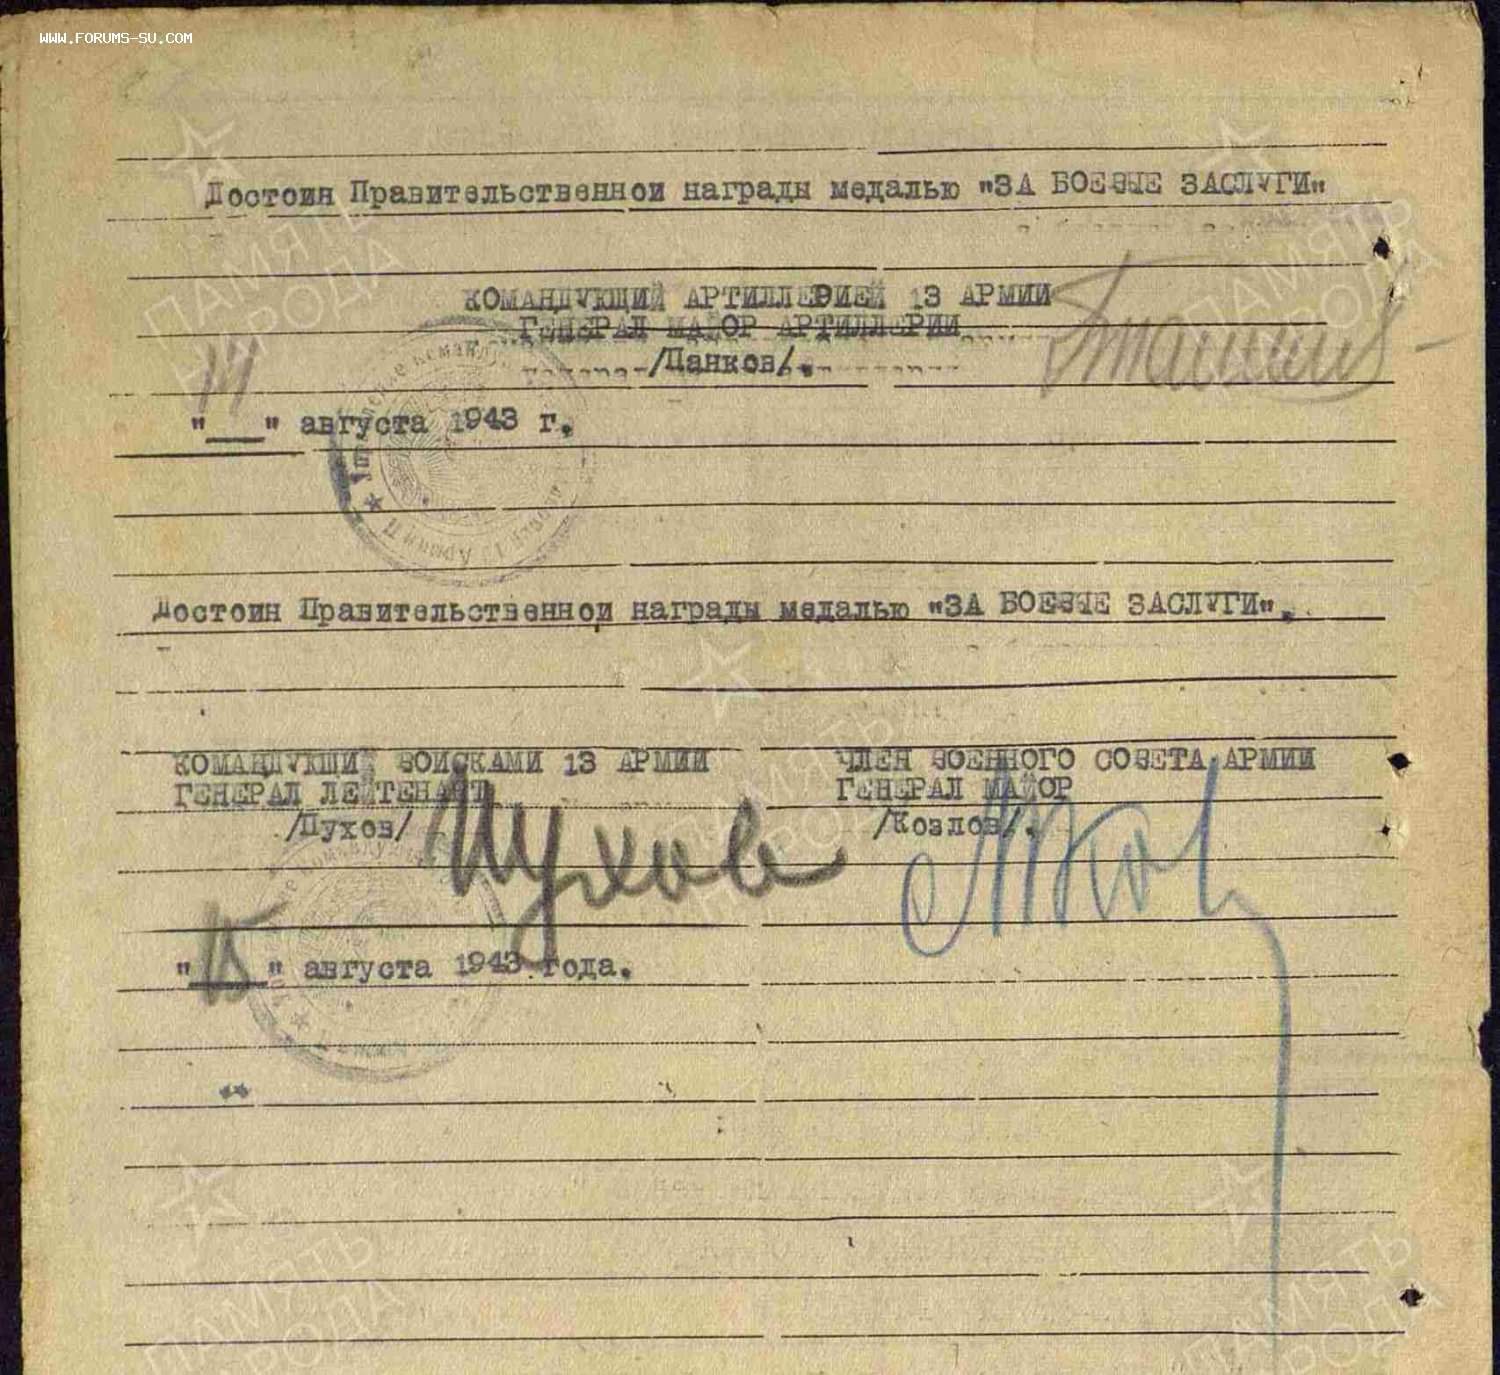 WWW.FORUMS-SU.COM
Достоин Правительственной награды медалью "ЗА БОЕВЫЕ ЗАСЛУГИ"
КОМАНДУЮЩИЙ АРТИЛЛЕРИЕЙ 13 АРМИИ
ГЕНЕРАЛ МАЙОР АРТИЛЛЕРИИ
/Панков/.
"14" августа 1943 г.
Достоин Правительственной награды медалью "ЗА БОЕВЫЕ ЗАСЛУГИ".
КОМАНДУЮЩИЙ ВОЙСКАМИ 13 АРМИИ
ГЕНЕРАЛ ЛЕЙТЕНАНТ
/Пухов/ Пухов
ЧЛЕН ВОЕННОГО СОВЕТА АРМИИ
ГЕНЕРАЛ МАЙОР
/Козлов/.
"15" августа 1943 года.
ПАМЯТЬ НАРОДА